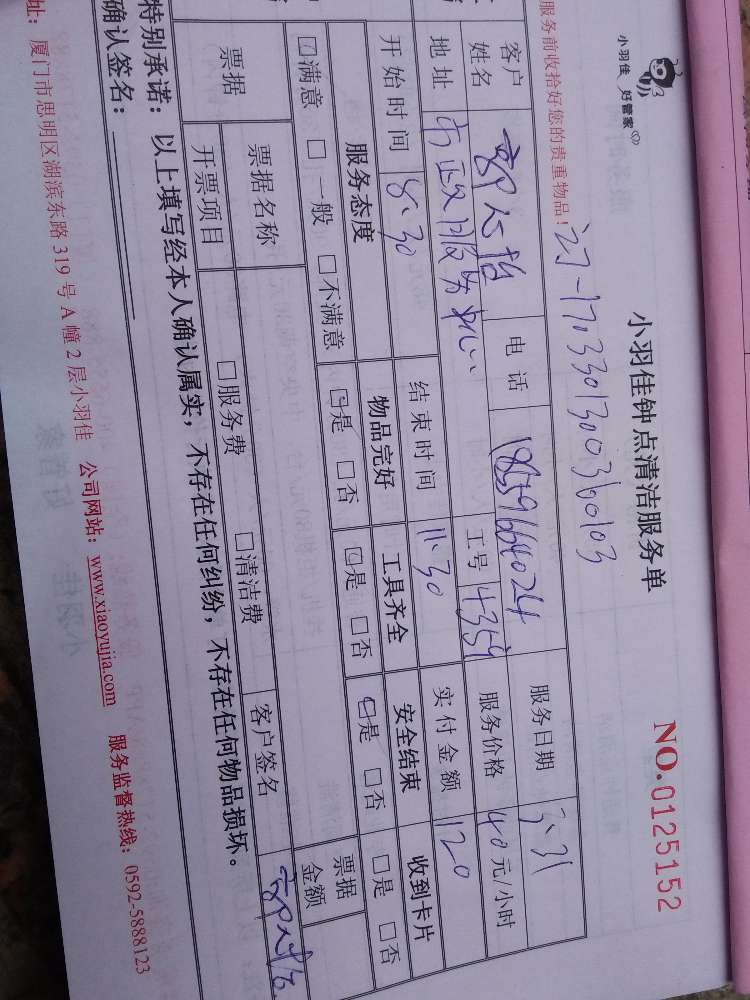 小羽佳 好管家
小羽佳钟点清洁服务单
NO.0125152
服务前收拾好您的贵重物品!
客户姓名 电话 18559664024 服务日期 3.31
地址 市政服务 工号 4359 服务价格 40元/小时
开始时间 8:30 结束时间 11:30 实付金额 120
服务态度 物品完好 工具齐全 安全结束 收到卡片
☑满意 □一般 □不满意 ☑是 □否 ☑是 □否 ☑是 □否 □是 □否
票据 票据名称 票据金额
开票项目 □服务费 □清洁费 客户签名
特别承诺:以上填写经本人确认属实,不存在任何纠纷,不存在任何物品损坏。
确认签名:
址:厦门市思明区湖滨东路 319 号 A 幢 2 层小羽佳 公司网站:www.xiaoyujia.com 服务监督热线:0592-5888123